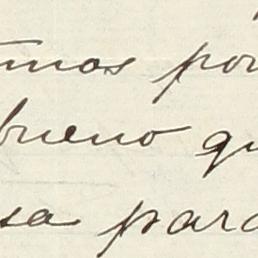 mos por
bueno qu
sa para